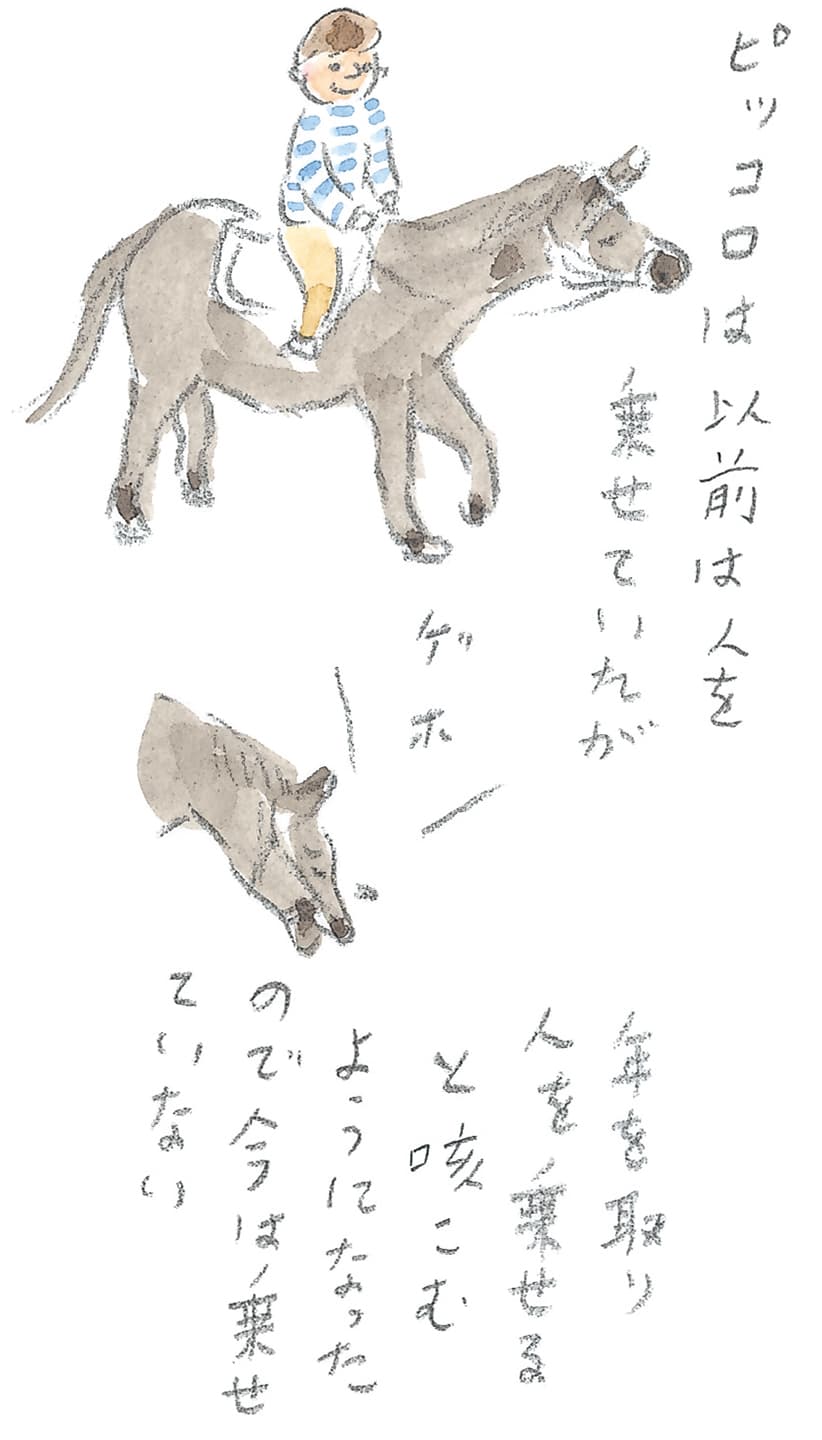 ピッコロは以前は人を
乗せていたが
ケッホ
年を取り
人を乗せる
と咳こむ
ようになった
ので今は乗せ
ていない